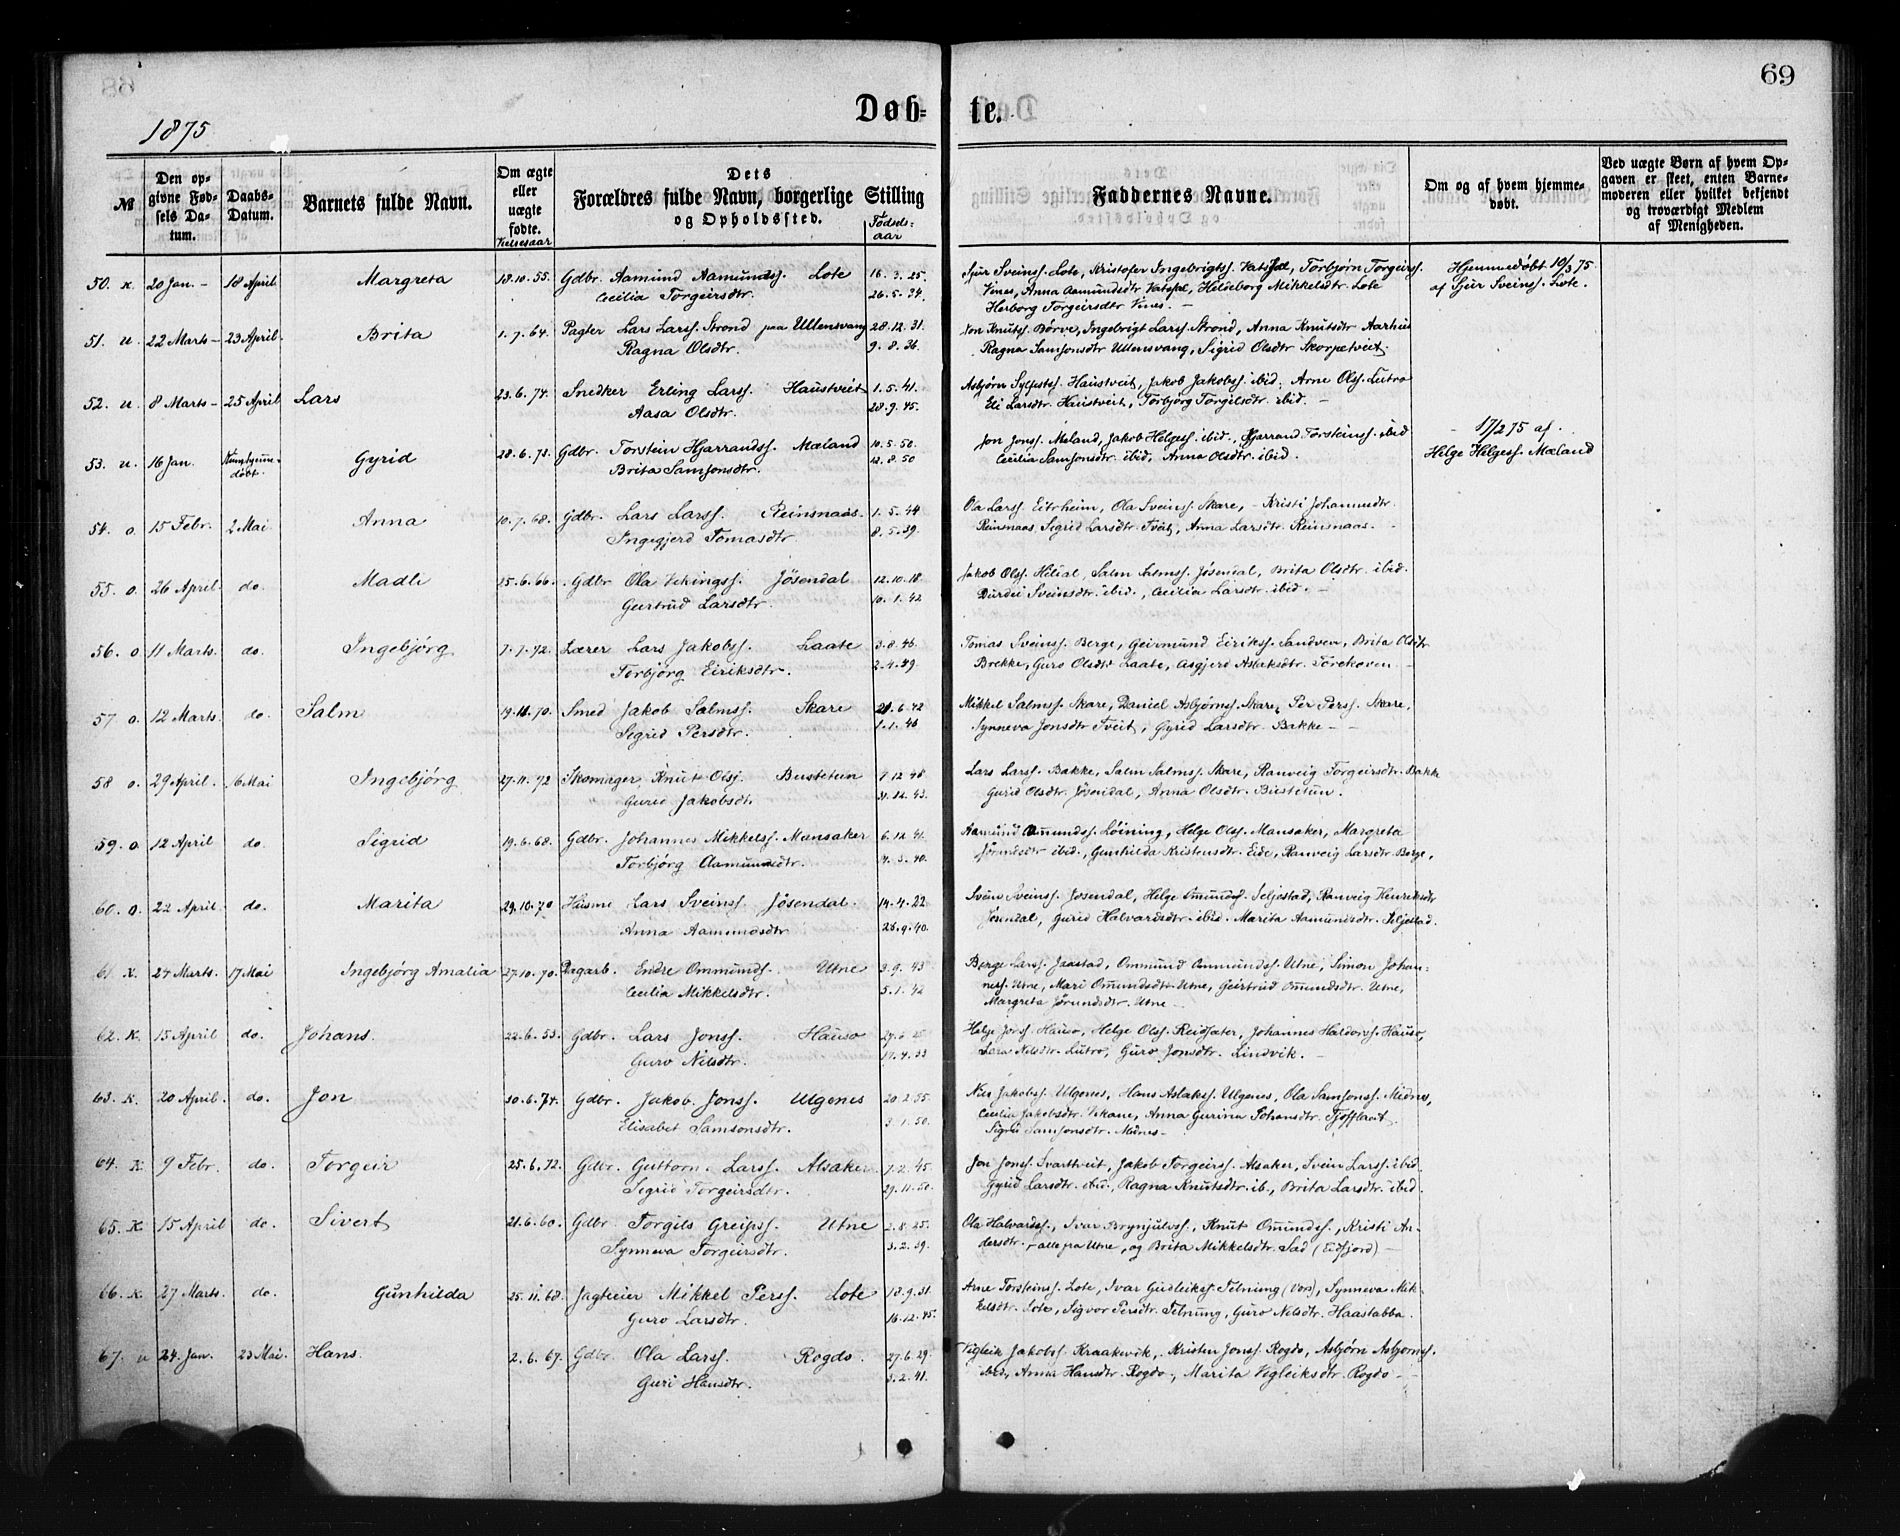 69
Døb- te.
1875
№
Den op-
givne Fød-
sels Da-
tum.
Daabs-
Datum.
Barnets fulde Navn.
Om ægte
eller
uægte
fødte.
Vielsesaar
Dets
Forældres fulde Navn, borgerlige Stilling
og Opholdssted.
Fødsels-
aar
Faddernes Navne.
Om og af hvem hjemme-
døbt.
Ved uægte Børn af hvem Op-
gaven er skeet, enten Barne-
moderen eller hvilket bekjendt
og troværdigt Medlem
af Menigheden.
50. K. 20 Jan. - 18 April Margreta 18.10.55. Gdbr. Aamund Aamundss. Lote 16.3.25.
Cecilia Torgeirsdtr. 26.5.34.
Sjur Sveinss. Lote, Kristofer Ingebrigtss. Torbjørn Torgeirss.
Vines, Anna Aamundsdtr Heldeborg Mikkelsdtr. Lote
Herborg Torgeirsdtr Vines. -
Hjemmedøbt 10/3 75
af Sjur Sveinss. Lote.
51. u. 22 Marts - 23 April Brita 1.7.64. Pagter Lars Larss. Strond paa Ullensvang 28.12.31.
Ragna Olsdtr. 9.8.36.
Jon Knutss. Børve, Ingebrigt Larss. Strond, Anna Knutsdtr Aarhus
Ragna Samsonsdtr Ullensvang, Sigrid Olsdtr Skorpetveit.
52. u. 8 Marts - 25 April Lars 23.6.74. Snedker Erling Larss. Haustveit 1.5.41.
Aasa Olsdtr. 28.9.45.
Asbjørn Sylfestss. Haustveit, Jakob Jakobss. ibid. Arne Olss. Lutro
Eli Larsdtr. Haustveit, Torbjørg Torgilsdtr. ibid. -
53. u. 16 Jan. døbt. Gyrid 28.6.73. Gdbr. Torstein Hjarrandss. Mæland 10.5.50.
Brita Samsonsdtr. 12.8.50
Jon Jonss. Meland, Jakob Helgess. ibid., Hjarrand Torsteinss. ibid
Cecilia Samsonsdtr. ibid, Anna Olsdtr. ibid.
17/2 75 af
Helge Helgess. Mæland
54. o. 15 Febr. 2 Mai Anna 10.7.68. Gdbr. Lars Larss. Reinsnaas. 1.5.44
Ingegjerd Tomasdtr 8.5.39.
Ola Larss. Eitrheim, Ola Sveinss. Skare, - Kristi Johannesdtr.
Reinsnaas, Sigrid Larsdtr. Tveit, Anna Larsdtr. Reinsnaas. -
55. o. 26 April do. Madli 25.6.66. Gdbr Ola Vikingss. Jösendal 12.10.18
Gurtrud Larsdtr. 10.1.42
Jakob Olss. Hildal, Salm Salmss. Jösendal, Brita Olsdtr. ibid.
Durdei Sveinsdtr. ibid., Cecilia Larsdtr. ibid. -
56. o 11 Marts. do. Ingebjörg 7.7.72. Lærer Lars Jakobss. Laate 3.8.46
Torbjörg Eiriksdtr. 2.4.49
Tomas Sveinss. Berge, Geirmund Eirikss. Sandven, Brita Olsdtr
Brekke, Guro Olsdtr Laate, Asgjerd Aslaksdtr. Torekoven -
57. o. 12 Marts do. Salm 19.11.70. Smed Jakob Salmss. Skare 21.6.42
Sigrid Persdtr. 1.1.46
Mikkel Salmss. Skare, Daniel Asbjørnss. Skare, Per Perss. Skare,
Synneva Jonsdtr Tveit, Gyrid Larsdtr. Bakke - -
58 o. 29 April. 6 Mai Ingebjörg 27.11.72 Skomager Knut Olss. Bustetun 7.12.48
Gurid Jakobsdtr. 31.12.43.
Lars Larss. Bakke, Salm Salmss. Skare, Ranveig Torgeirsdtr. Bakke
Gurid Olsdtr. Jösendal, Anna Olsdtr. Bustetun.
59. o. 12 April do. Sigrid 19.6.68. Gdbr. Johannes Mikkelss. Mansaker 6.12.41.
Torbjörg Aamundsdtr. 4.3.40.
Aamund Omundss. Löining, Helge Olss. Mansaker, Margreta
Jörundsdtr ibid., Gunhilda Kristensdtr. Eide, Ranveig Larsdtr. Berge,
60. o. 22 April do. Marita 29.10.70 Husm. Lars Sveinss. Jösendal. 14.4.22
Anna Aamundsdtr 25.9.40.
Svein Sveinss. Jösendal, Helge Omundss. Seljestad, Ranveig Henriksdtr
Jösendal, Gurid Halvardsdtr. ibid. Marita Aamundsdtr. Seljestad.
61. K. 24 Marts. 17 Mai Ingebjörg Amalia 27.10.70. Dagarb. Endre Ommundss. Utne 3.9.43
Cecilia Mikkelsdtr. 5.1.42
Børge Larss. Jaastad, Ommund Ommundss. Utne, Simon Johan-
ness. Utne, Mari Omundsdtr Utne, Geirtrud Omundsdtr. Utne,
Margreta Jörundsdtr. Utne -
62. K. 15 April do. Johans. 22.6.53. Gdbr. Lars Jonss. Hauso
Guro Nilsdtr. 17.4.33
Helge Jonss. Hauso, Helge Olss. Reidsæter, Johannes Haldorss. Hauso,
Nilsdtr. Lutro, Guro Jonsdtr. Lindvik. -
63. K. 20 April. do. Jon 30.6.74. Gdbr. Jakob Jonss. Ulgenes 20.2.35
Elisabet Samsonsdtr. 3.1.50.
Nils Jakobss. Ulgenes, Hans Aslakss. Ulgenes, Ola Samsonss. Midnes,
Cecilia Jakobsdtr. Vikane, Anna Gurina Johansdtr. Tjofflaat,
Sigrid Samsonsdtr. Midnes -
64. K 9 Febr. do. Torgeir 25.6.72. Gdbr. Guttorm Larss. Alsaker 7.2.45
Sigrid Torgeirsdtr. 29.11.50.
Jon Jonss. Svarttveit, Jakob Torgeirss. Alsaker, Svein Larss. ibid.
Gyrid Larsdtr. ibid., Ragna Knutsdtr. ib., Brita Larsdtr. ibid.
65. K 15 April do. Sivert 21.6.60. Gdbr. Torgils Greipss. Utne 2.8.25.
Synneva Torgeirsdtr. 3.2.39.
Ola Halvardss., Ivar Brynjulvss., Knut Omundss., Kristi An-
dersdtr. - alle fra Utne, og Brita Mikkelsdtr. Sæd (Eidfjord) -
66. K 27 Marts. do. Gunhilda 25.11.68. Jagteier Mikkel Perss. Lote 13.9.31
Guro Larsdtr. 16.12.45.
Arne Torsteinss. Lote, Ivar Gudleikss. Felnung (Vors), Synneva Mik-
kelsdtr. Lote, Sigvor Persdtr. Felnung, Guro Nilsdtr. Haastabba.
67. u 24. Jan. 23 Mai. Hans. 2.6.67. Gdbr. Ola Larss. Rogdo. 27.6.29.
Guri Hansdtr. 3.2.41.
Vigleik Jakobss. Kraakevik, Kristen Jonss. Rogdo, Asbjørn Asbjørnss.
ibid, Anna Hansdtr. Rogdo, Marita Vigleiksdtr. Rogdo - -